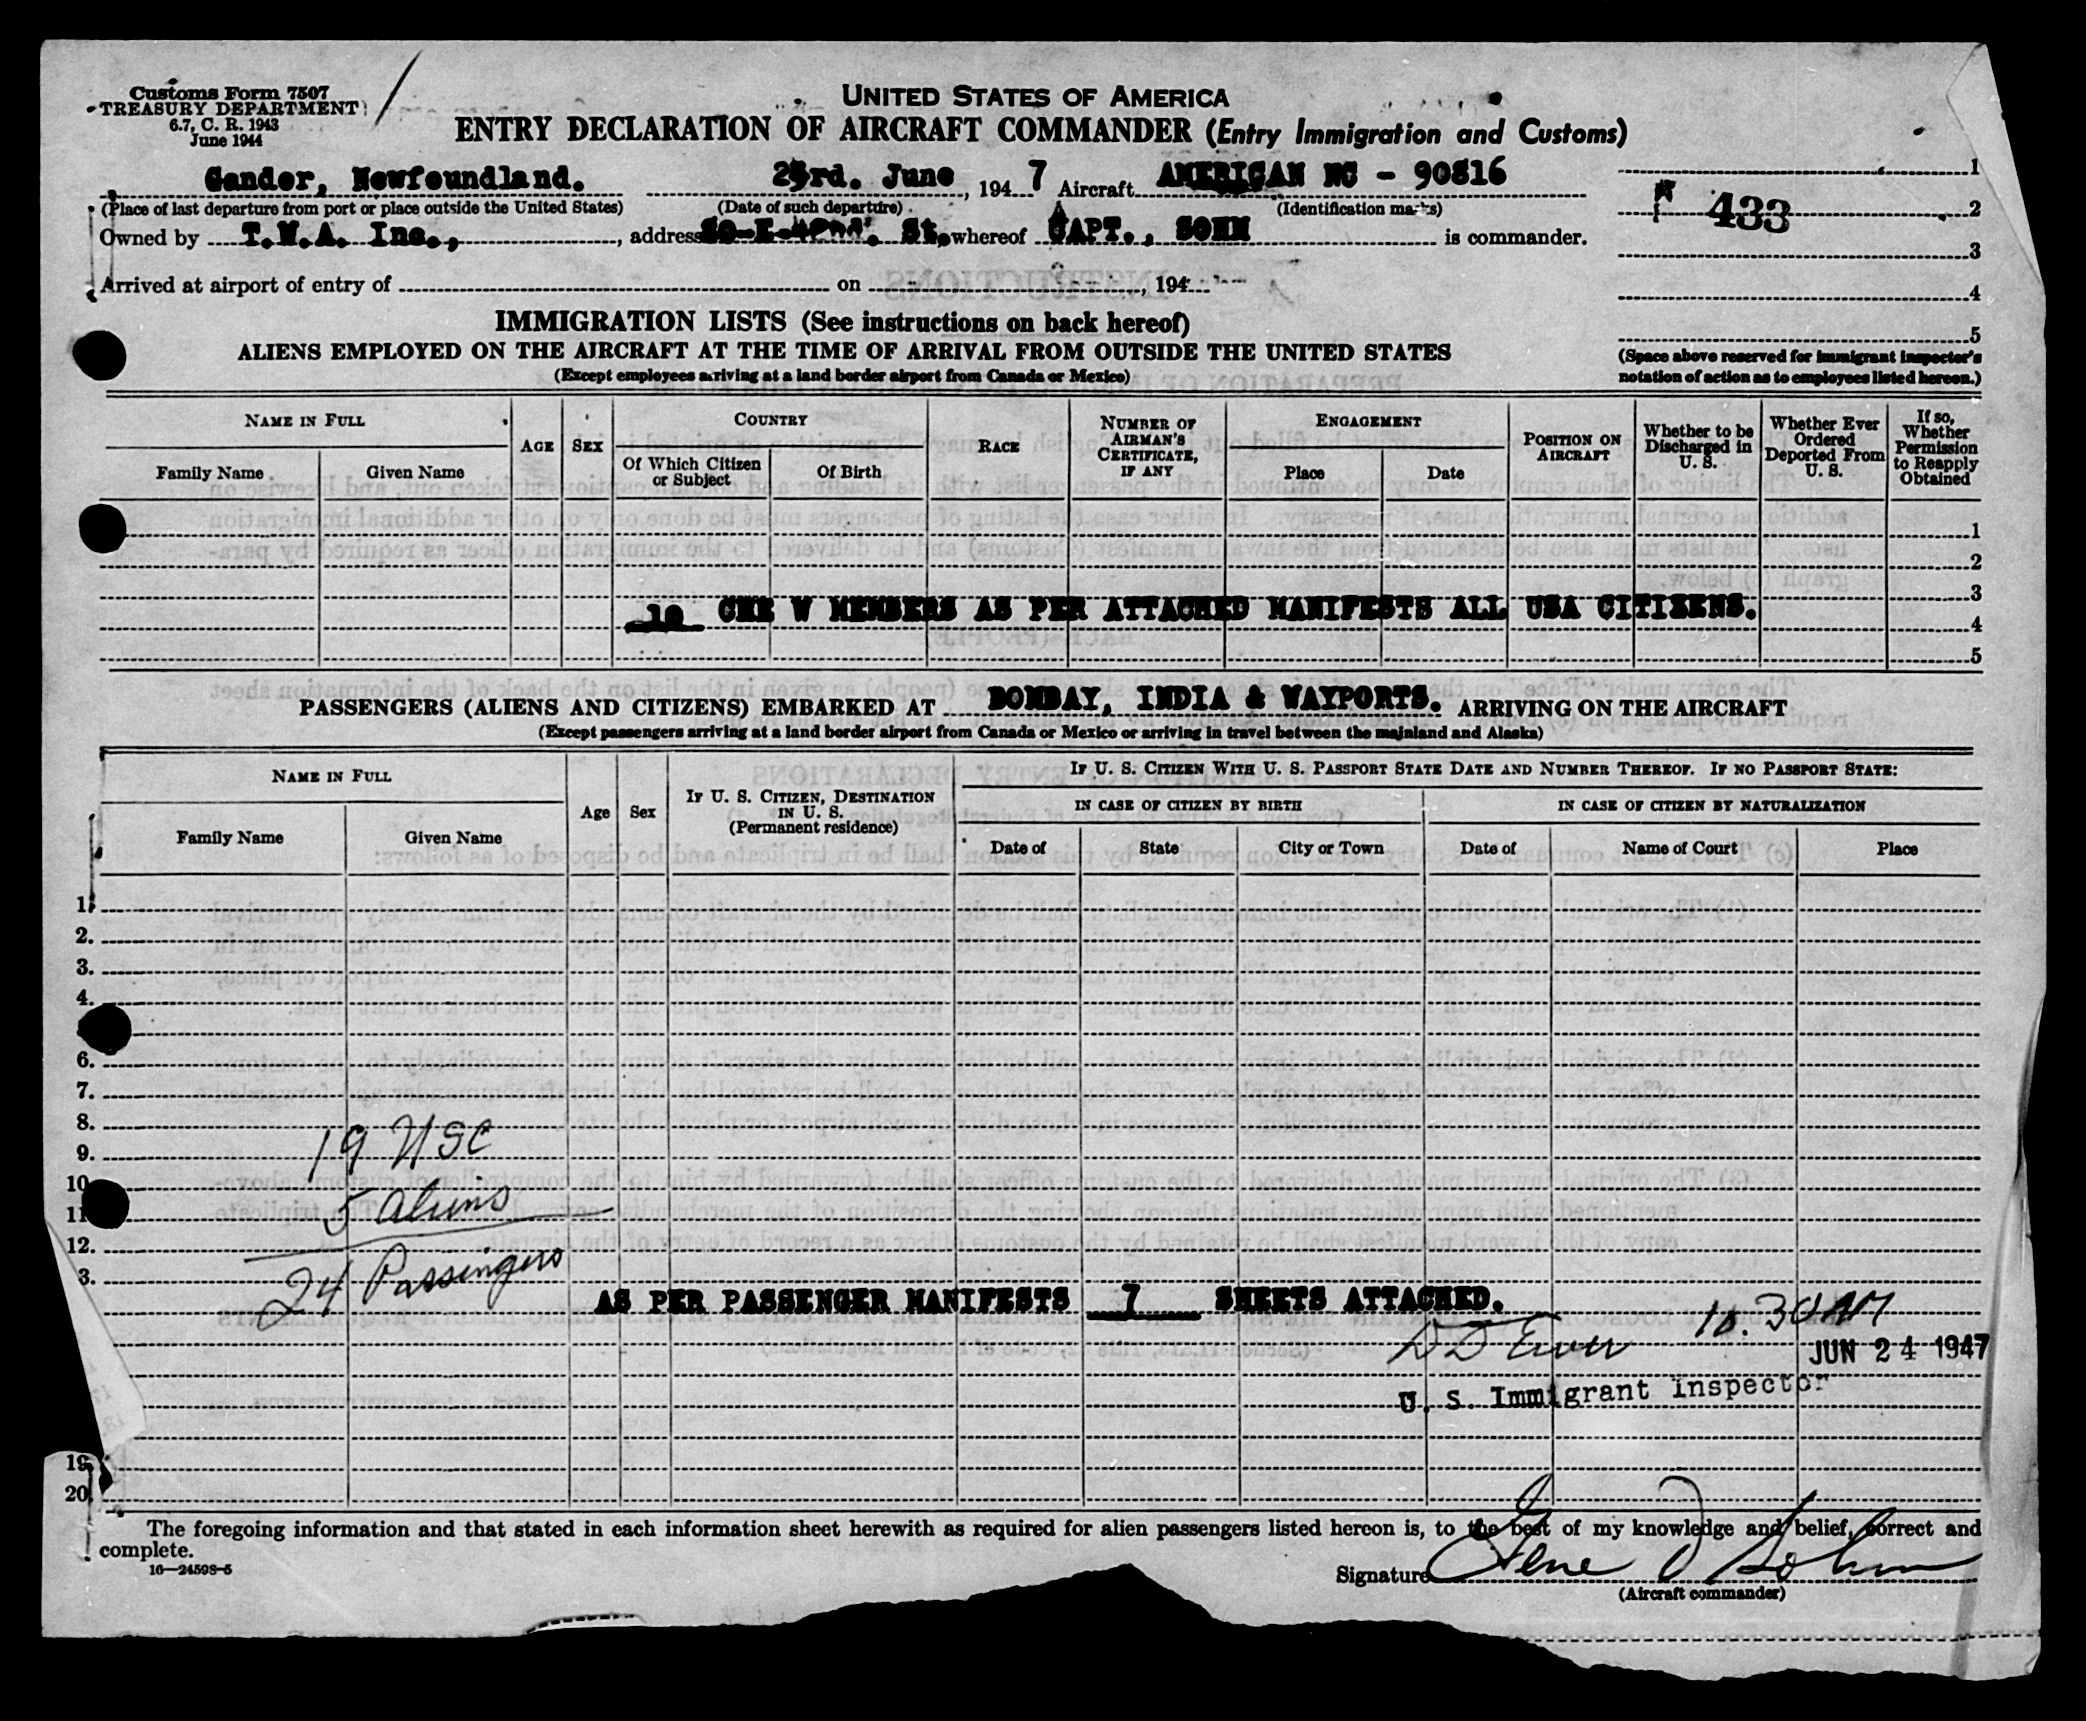 Customs Form 7507
TREASURY DEPARTMENT
6.7, C. R. 1943
June 1944
UNITED STATES OF AMERICA
ENTRY DECLARATION OF AIRCRAFT COMMANDER (Entry Immigration and Customs)
Gander, Newfoundland. 23rd. June, 1947 Aircraft AMERICAN NC - 90816
(Place of last departure from port or place outside the United States) (Date of such departure) (Identification marks)
Owned by T.W.A. Inc., address St. whereof CAPT., SOHN is commander.
Arrived at airport of entry of on , 194
1
433 2
3
4
5
(Space above reserved for immigrant inspector's
notation of action as to employees listed hereon.)
IMMIGRATION LISTS (See instructions on back hereof)
ALIENS EMPLOYED ON THE AIRCRAFT AT THE TIME OF ARRIVAL FROM OUTSIDE THE UNITED STATES
(Except employees arriving at a land border airport from Canada or Mexico)
NAME IN FULL
Family Name
Given Name
AGE
SEX
COUNTRY
Of Which Citizen or Subject
Of Birth
RACE
NUMBER OF AIRMAN'S CERTIFICATE, IF ANY
ENGAGEMENT
Place
Date
POSITION ON AIRCRAFT
Whether to be Discharged in U. S.
Whether Ever Ordered Deported From U. S.
If so, Whether Permission to Reapply Obtained
1
2
3
10 CRE W MEMBERS AS PER ATTACHED MANIFESTS ALL USA CITIZENS.
4
5
PASSENGERS (ALIENS AND CITIZENS) EMBARKED AT BOMBAY, INDIA & WAYPORTS. ARRIVING ON THE AIRCRAFT
(Except passengers arriving at a land border airport from Canada or Mexico or arriving in travel between the mainland and Alaska)
NAME IN FULL
Family Name
Given Name
Age
Sex
IF U. S. CITIZEN, DESTINATION IN U. S.
(Permanent residence)
IF U. S. CITIZEN WITH U. S. PASSPORT STATE DATE AND NUMBER THEREOF. IF NO PASSPORT STATE:
IN CASE OF CITIZEN BY BIRTH
IN CASE OF CITIZEN BY NATURALIZATION
Date of
State
City or Town
Date of
Name of Court
Place
1.
2.
3.
4.
6.
7.
8.
19 USC
9.
10
5 aliens
11
12.
24 Passengers
3.
AS PER PASSENGER MANIFESTS 7 SHEETS ATTACHED.
10.30 AM
JUN 24 1947
U. S. Immigrant Inspector
19
20
The foregoing information and that stated in each information sheet herewith as required for alien passengers listed hereon is, to the best of my knowledge and belief, correct and
complete.
16—24598-5
Signature Gene Sohn
(Aircraft commander)